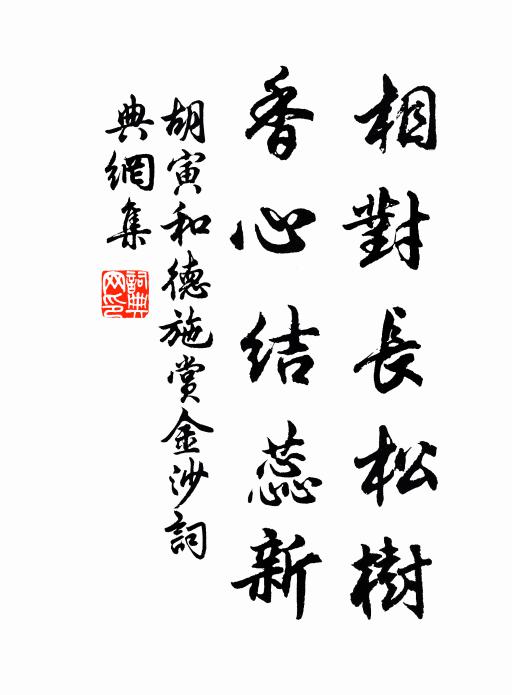 相對長松樹
香心結蕊新
胡寅和德施賞金沙詞
典網集
詞典网印